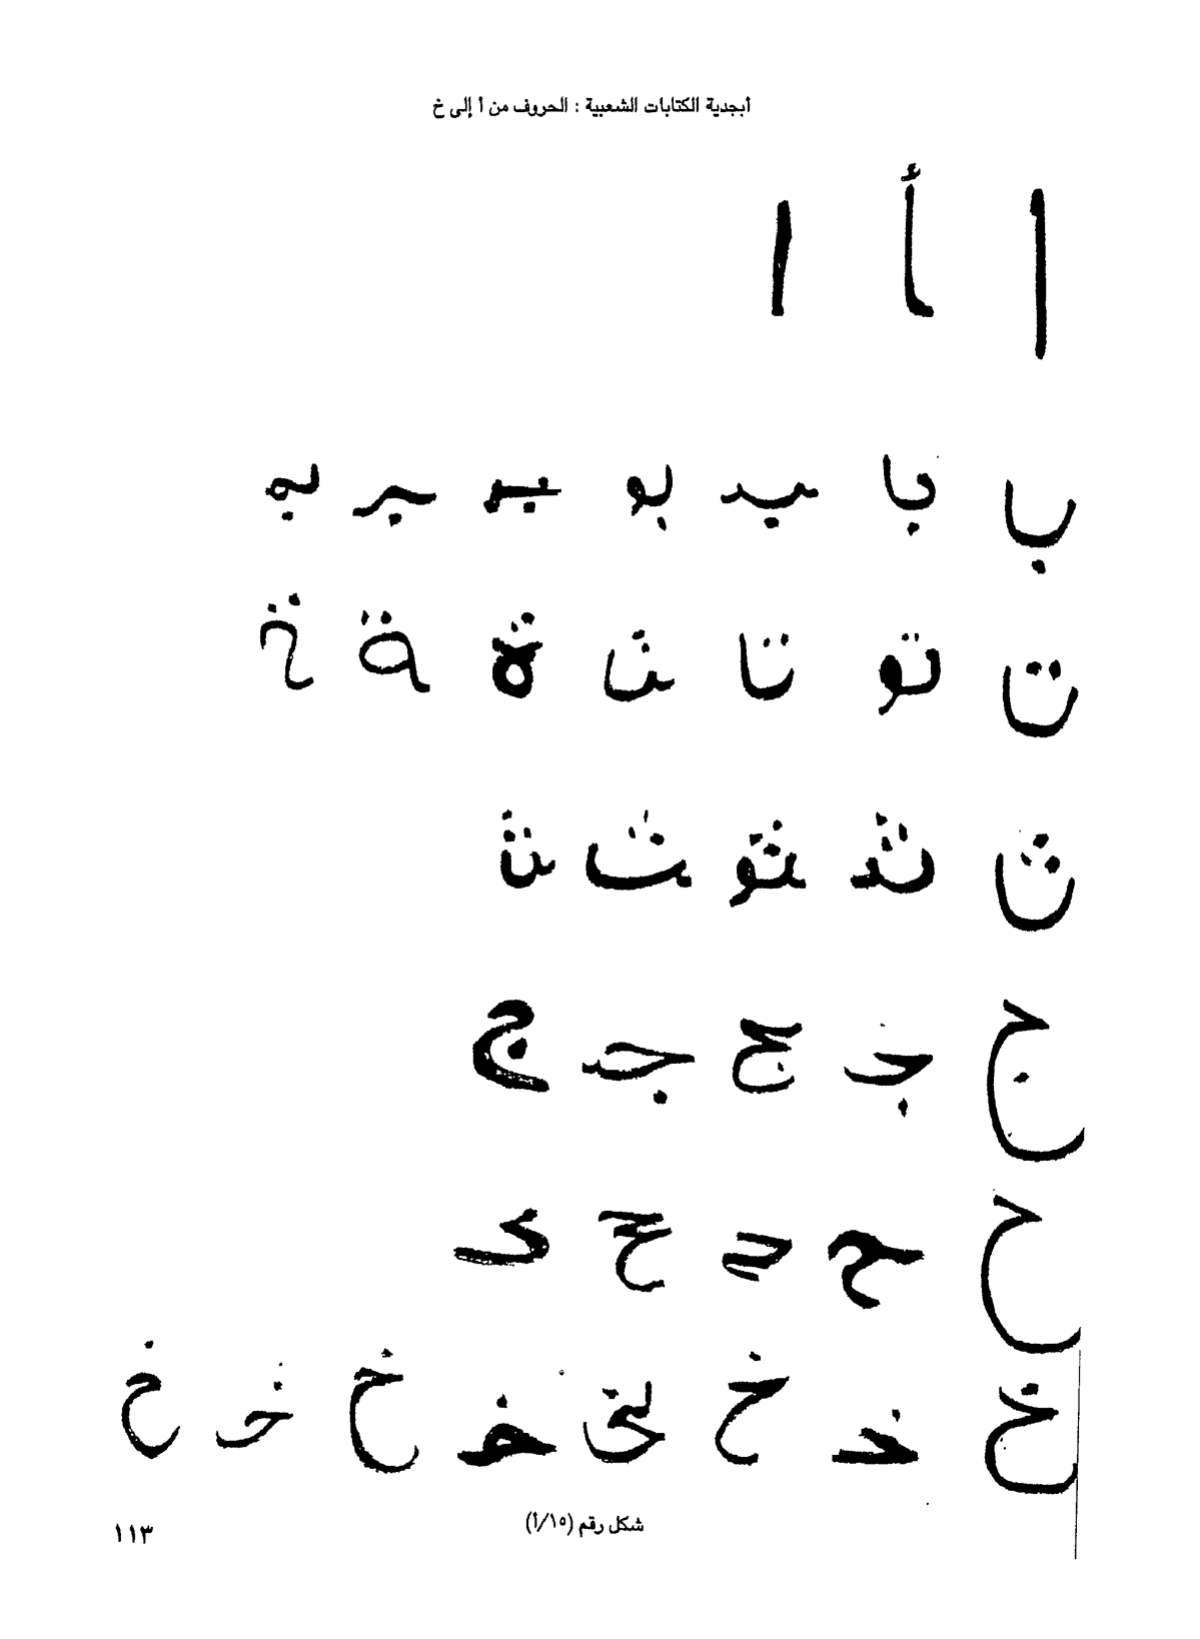 أبجدية الكتابات الشعبية : الحروف من أ إلى خ
ا أ ا
ب با بد بو بد بر به
ت تو تا تـ ة ة ة
ث ثد ثو ث ثـ
ج جـ ج جـ ج
ح ح ح ح حـ
خ خـ خ خـ لخ خ خـ خ
شكل رقم (١٥/أ)
١١٣